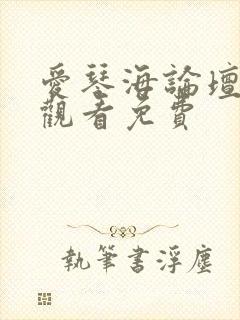 愛琴海論壇
觀看免費
執筆書浮塵